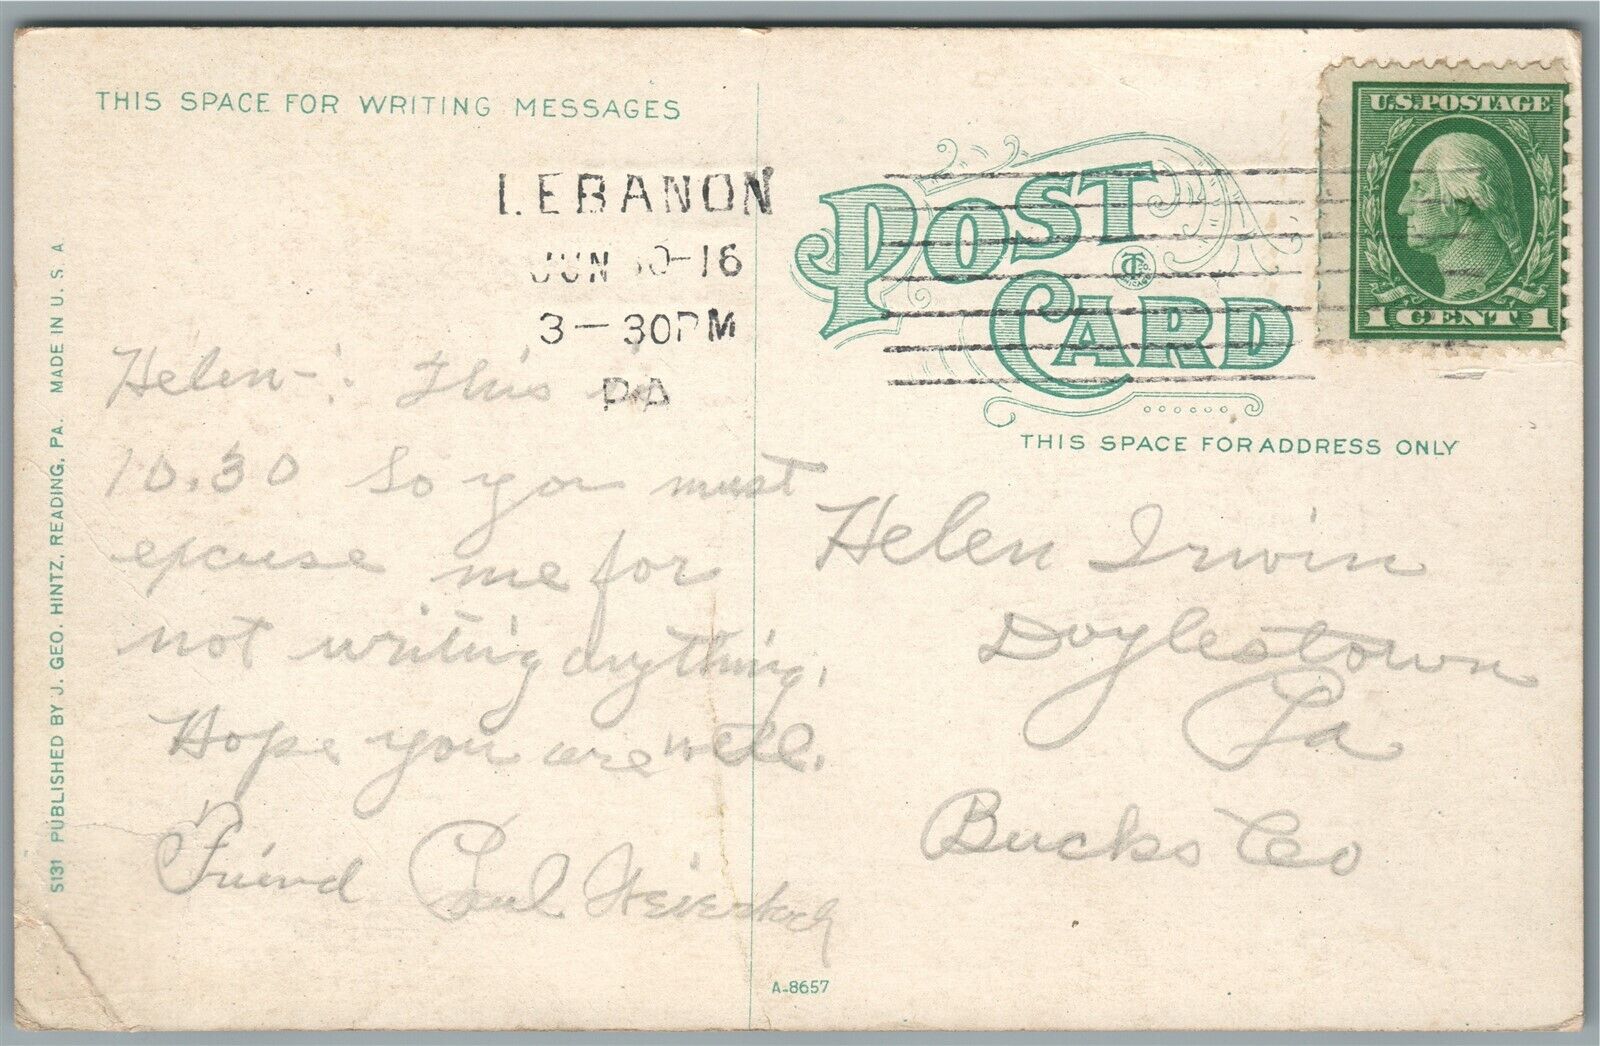 THIS SPACE FOR WRITING MESSAGES
LEBANON
JUN 30-16
3-30PM
PA
POST CARD
THIS SPACE FOR ADDRESS ONLY
U.S. POSTAGE
1 CENT 1
S131 PUBLISHED BY J. GEO. HINTZ, READING, PA. MADE IN U. S. A.
Helen-: This is
10.30 So you must
excuse me for
not writing anything.
Hope you are well.
Friend Paul
Helen Irwin
Doylestown
Pa
Bucks Co
A-8657